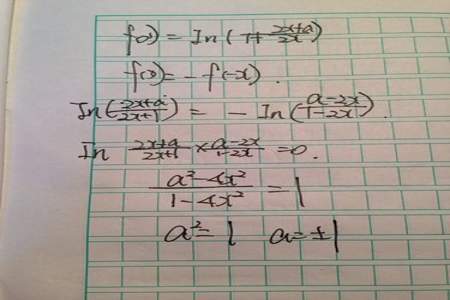 f(x) = In(1+ (2x+a)/(2x))
f(x) = - f(-x).
In((2x+a)/(2x+1)) = - In((a-2x)/(1-2x)).
In (2x+a)/(2x+1) × (a-2x)/(1-2x) = 0.
(a²-4x²)/(1-4x²) = 1
a² = 1 a = ±1